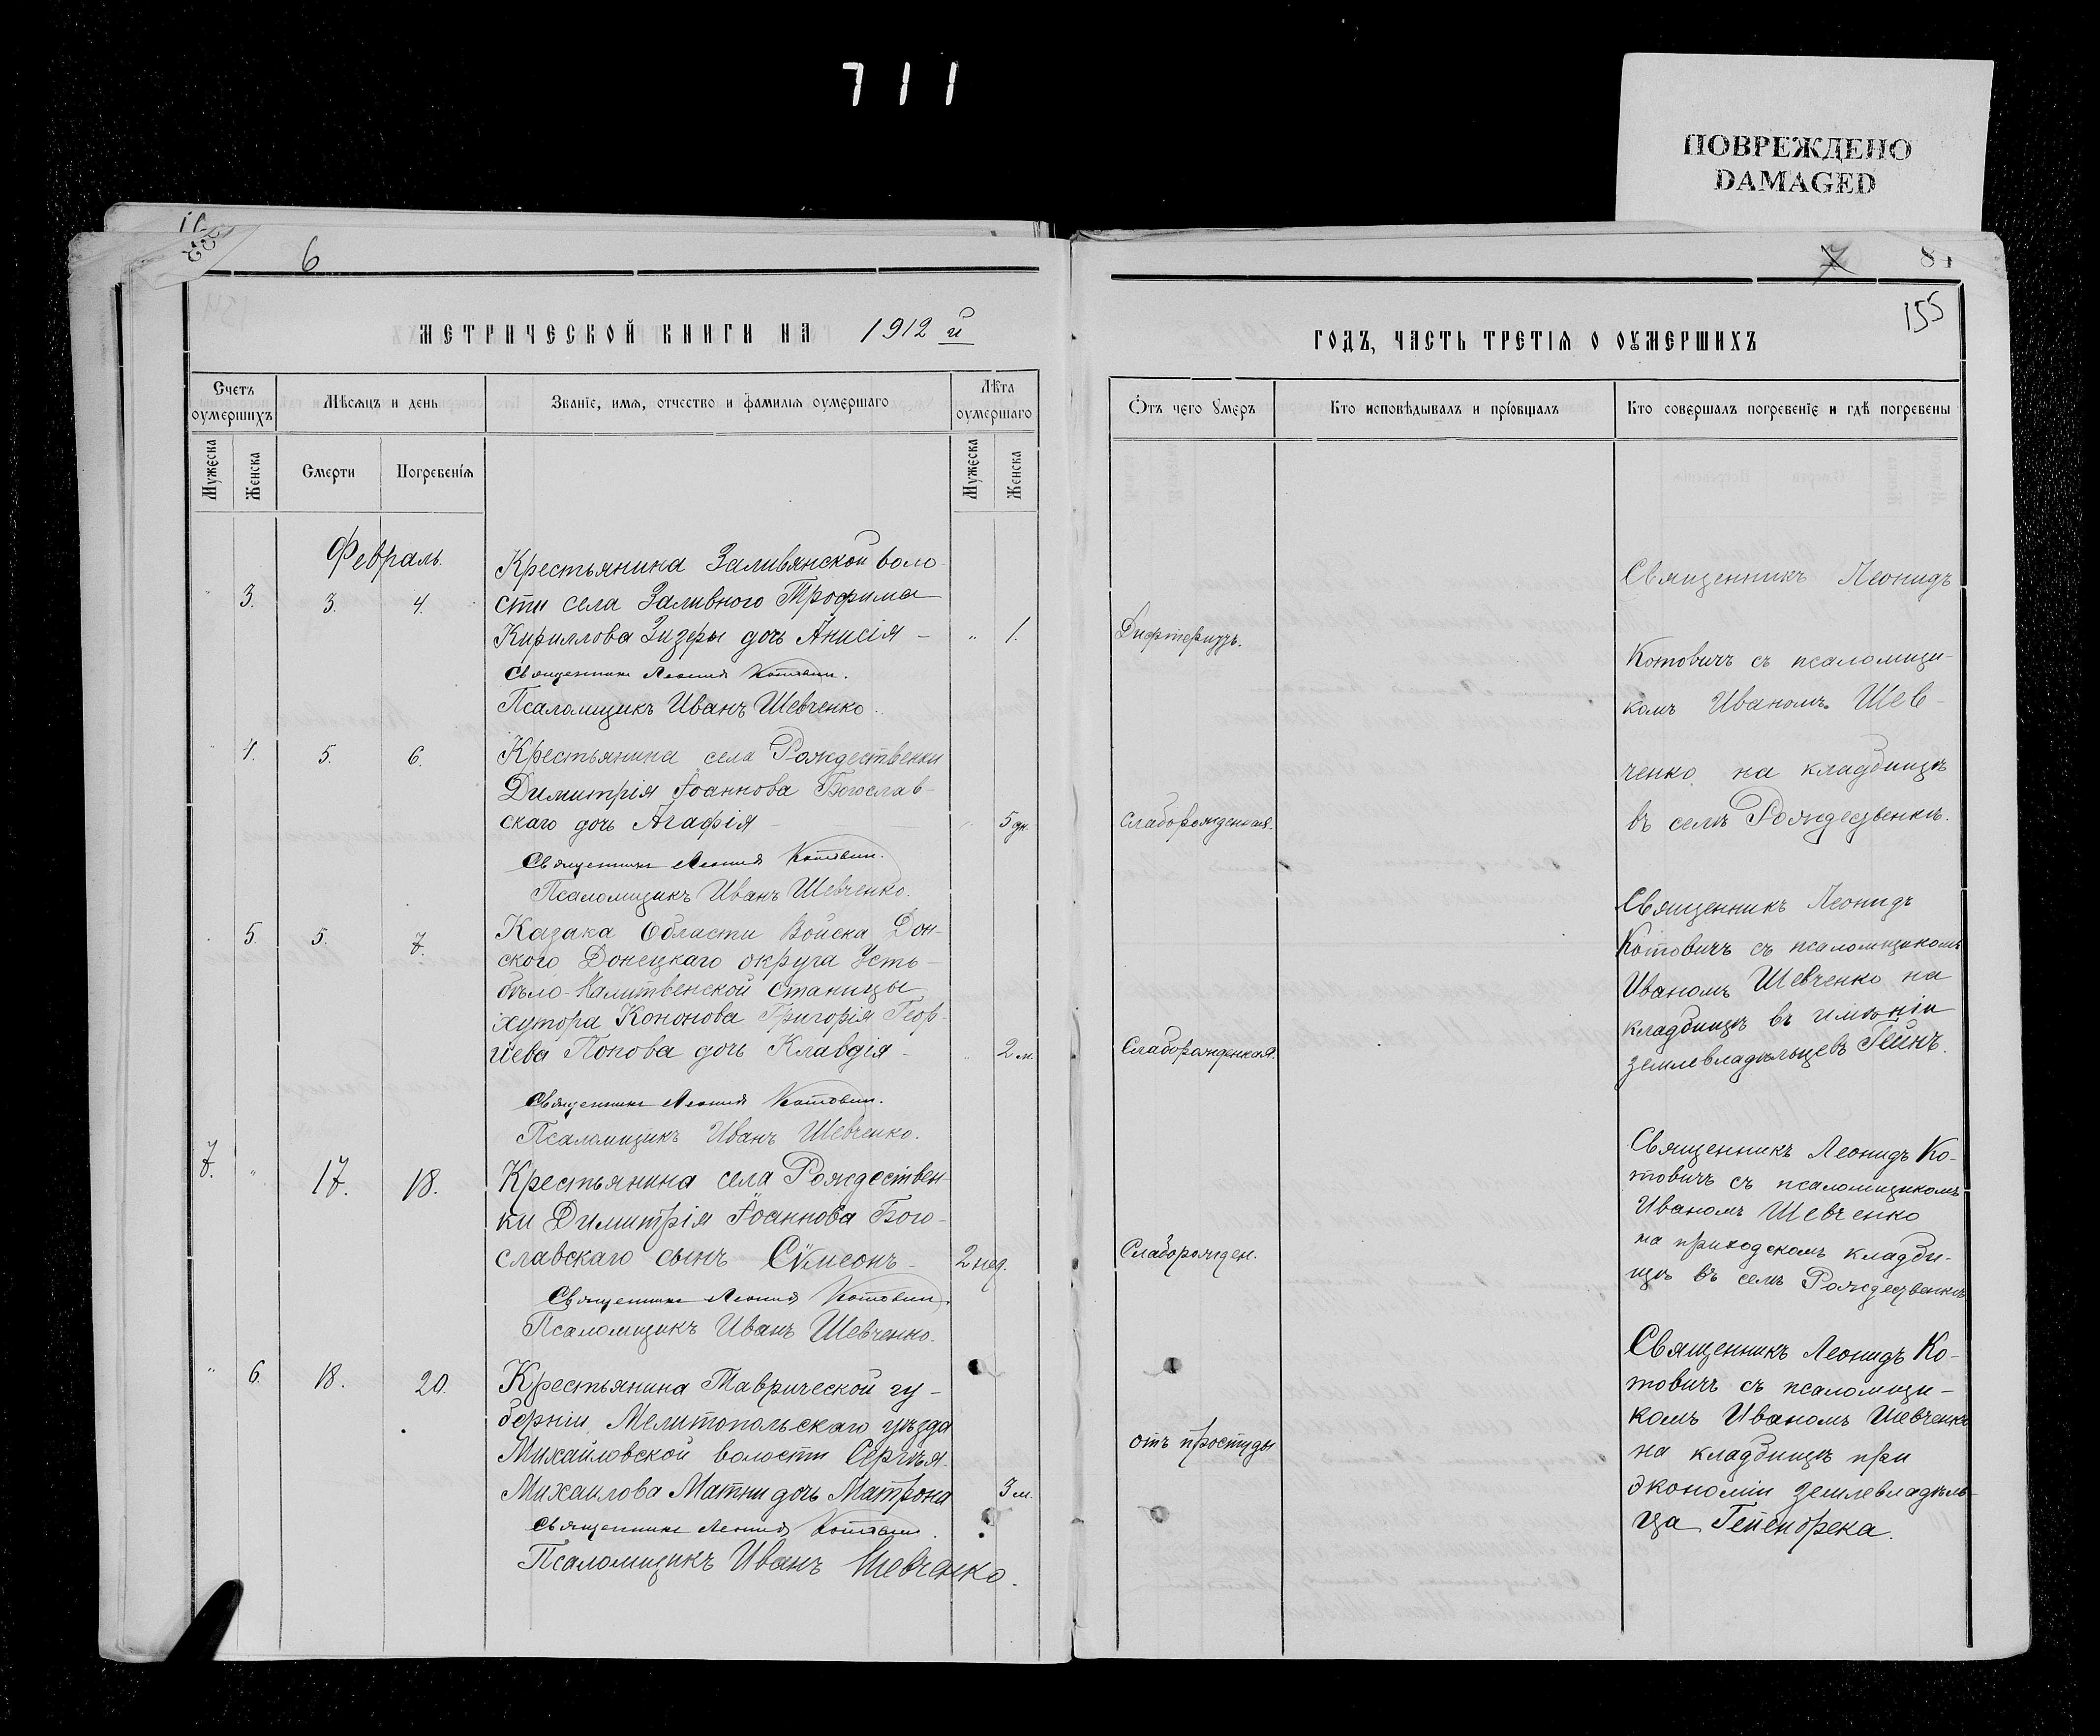 711
ПОВРЕЖДЕНО
DAMAGED
6
МЕТРИЧЕСКОЙ КНИГИ НА 1912 й
Счетъ оумершихъ
Мѣсяцъ и день
Званіе, имя, отчество и фамилія оумершаго
Лѣта оумершаго
Мужеска
Женска
Смерти
Погребенія
Мужеска
Женска
Февраль.
" 3. 3. 4.
Крестьянина Заливянской воло
сти села Заливного Трофима
Кириллова Зизеры дочь Анисія – " 1.
Священникъ Леонид Котович.
Псаломщикъ Иванъ Шевченко.
" 4. 5. 6.
Крестьянина села Рождественки
Димитрія Іоаннова Богослав-
скаго дочь Агафія – " 5 дн.
Священникъ Леонид Котович.
Псаломщикъ Иванъ Шевченко.
5. 5. 7.
Казака Области Войска Дон-
ского Донецкаго округа Усть-
бѣло-Калитвенской Станицы
хутора Кононова Григорія Геор-
гіева Попова дочь Клавдія – 2 м.
Священникъ Леонид Котович.
Псаломщикъ Иванъ Шевченко.
7. " 17. 18.
Крестьянина села Рождествен
ки Димитрія Іоаннова Бого-
славскаго сынъ Сѵмеонъ – 2 нед.
Священникъ Леонид Котович.
Псаломщикъ Иванъ Шевченко.
" 6. 18. 20.
Крестьянина Таврической гу-
берніи, Мелитопольскаго уѣзда
Михайловской волости Сергѣя
Михаилова Матни дочь Матрона 3 м.
Священникъ Леонид Котович.
Псаломщикъ Иванъ Шевченко.
7 84
155
ГОДЪ, ЧАСТЬ ТРЕТІЯ О ОУМЕРШИХЪ
Ѿтъ чего умеръ
Кто исповѣдывалъ и пріобщалъ
Кто совершалъ погребеніе и гдѣ погребены
Дифтеритъ.
Священникъ Леонидъ
Котовичъ съ псаломщи-
комъ Иваномъ Шев-
ченко на кладбищѣ
въ селѣ Рождественкѣ.
Слаборожденная.
Священникъ Леонидъ
Котовичъ съ псаломщикомъ
Иваномъ Шевченко на
кладбищѣ въ имѣніи
землевладѣльцевъ Гейнъ.
Слаборожденная.
Священникъ Леонидъ Ко-
товичъ съ псаломщикомъ
Иваномъ Шевченко
на приходскомъ кладби-
щѣ въ селѣ Рождественкѣ
Слаборожден.
Священникъ Леонидъ Ко-
товичъ съ псаломщи-
комъ Иваномъ Шевченко
на кладбищѣ при
экономіи землевладѣль-
ца
отъ простуды